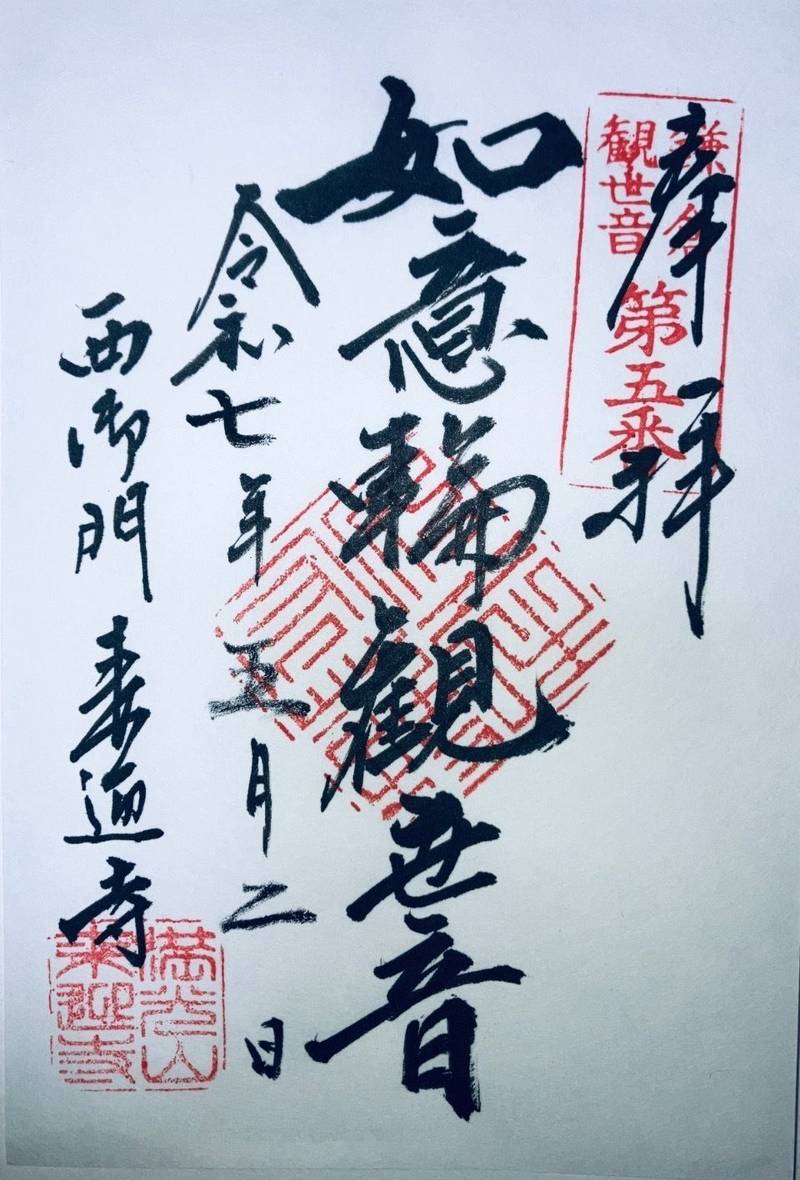 奉拝
鎌倉
観世音
第五番
如意輪観世音
令和七年五月二日
西御門 来迎寺
満光山
来迎寺